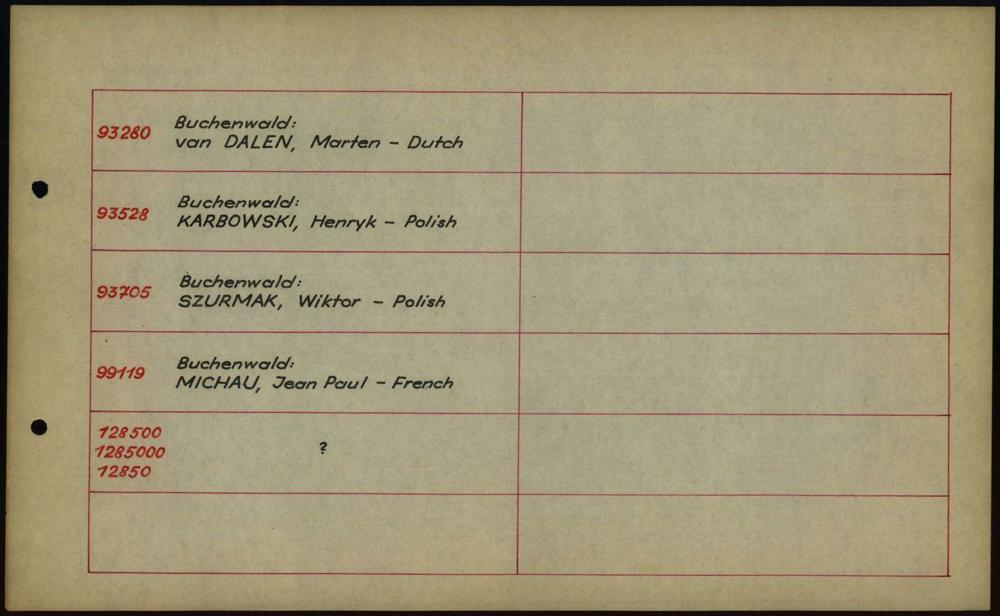 93280 Buchenwald:
van DALEN, Marten - Dutch
93528 Buchenwald:
KARBOWSKI, Henryk - Polish
93705 Buchenwald:
SZURMAK, Wiktor - Polish
99119 Buchenwald:
MICHAU, Jean Paul - French
128500
1285000 ?
12850